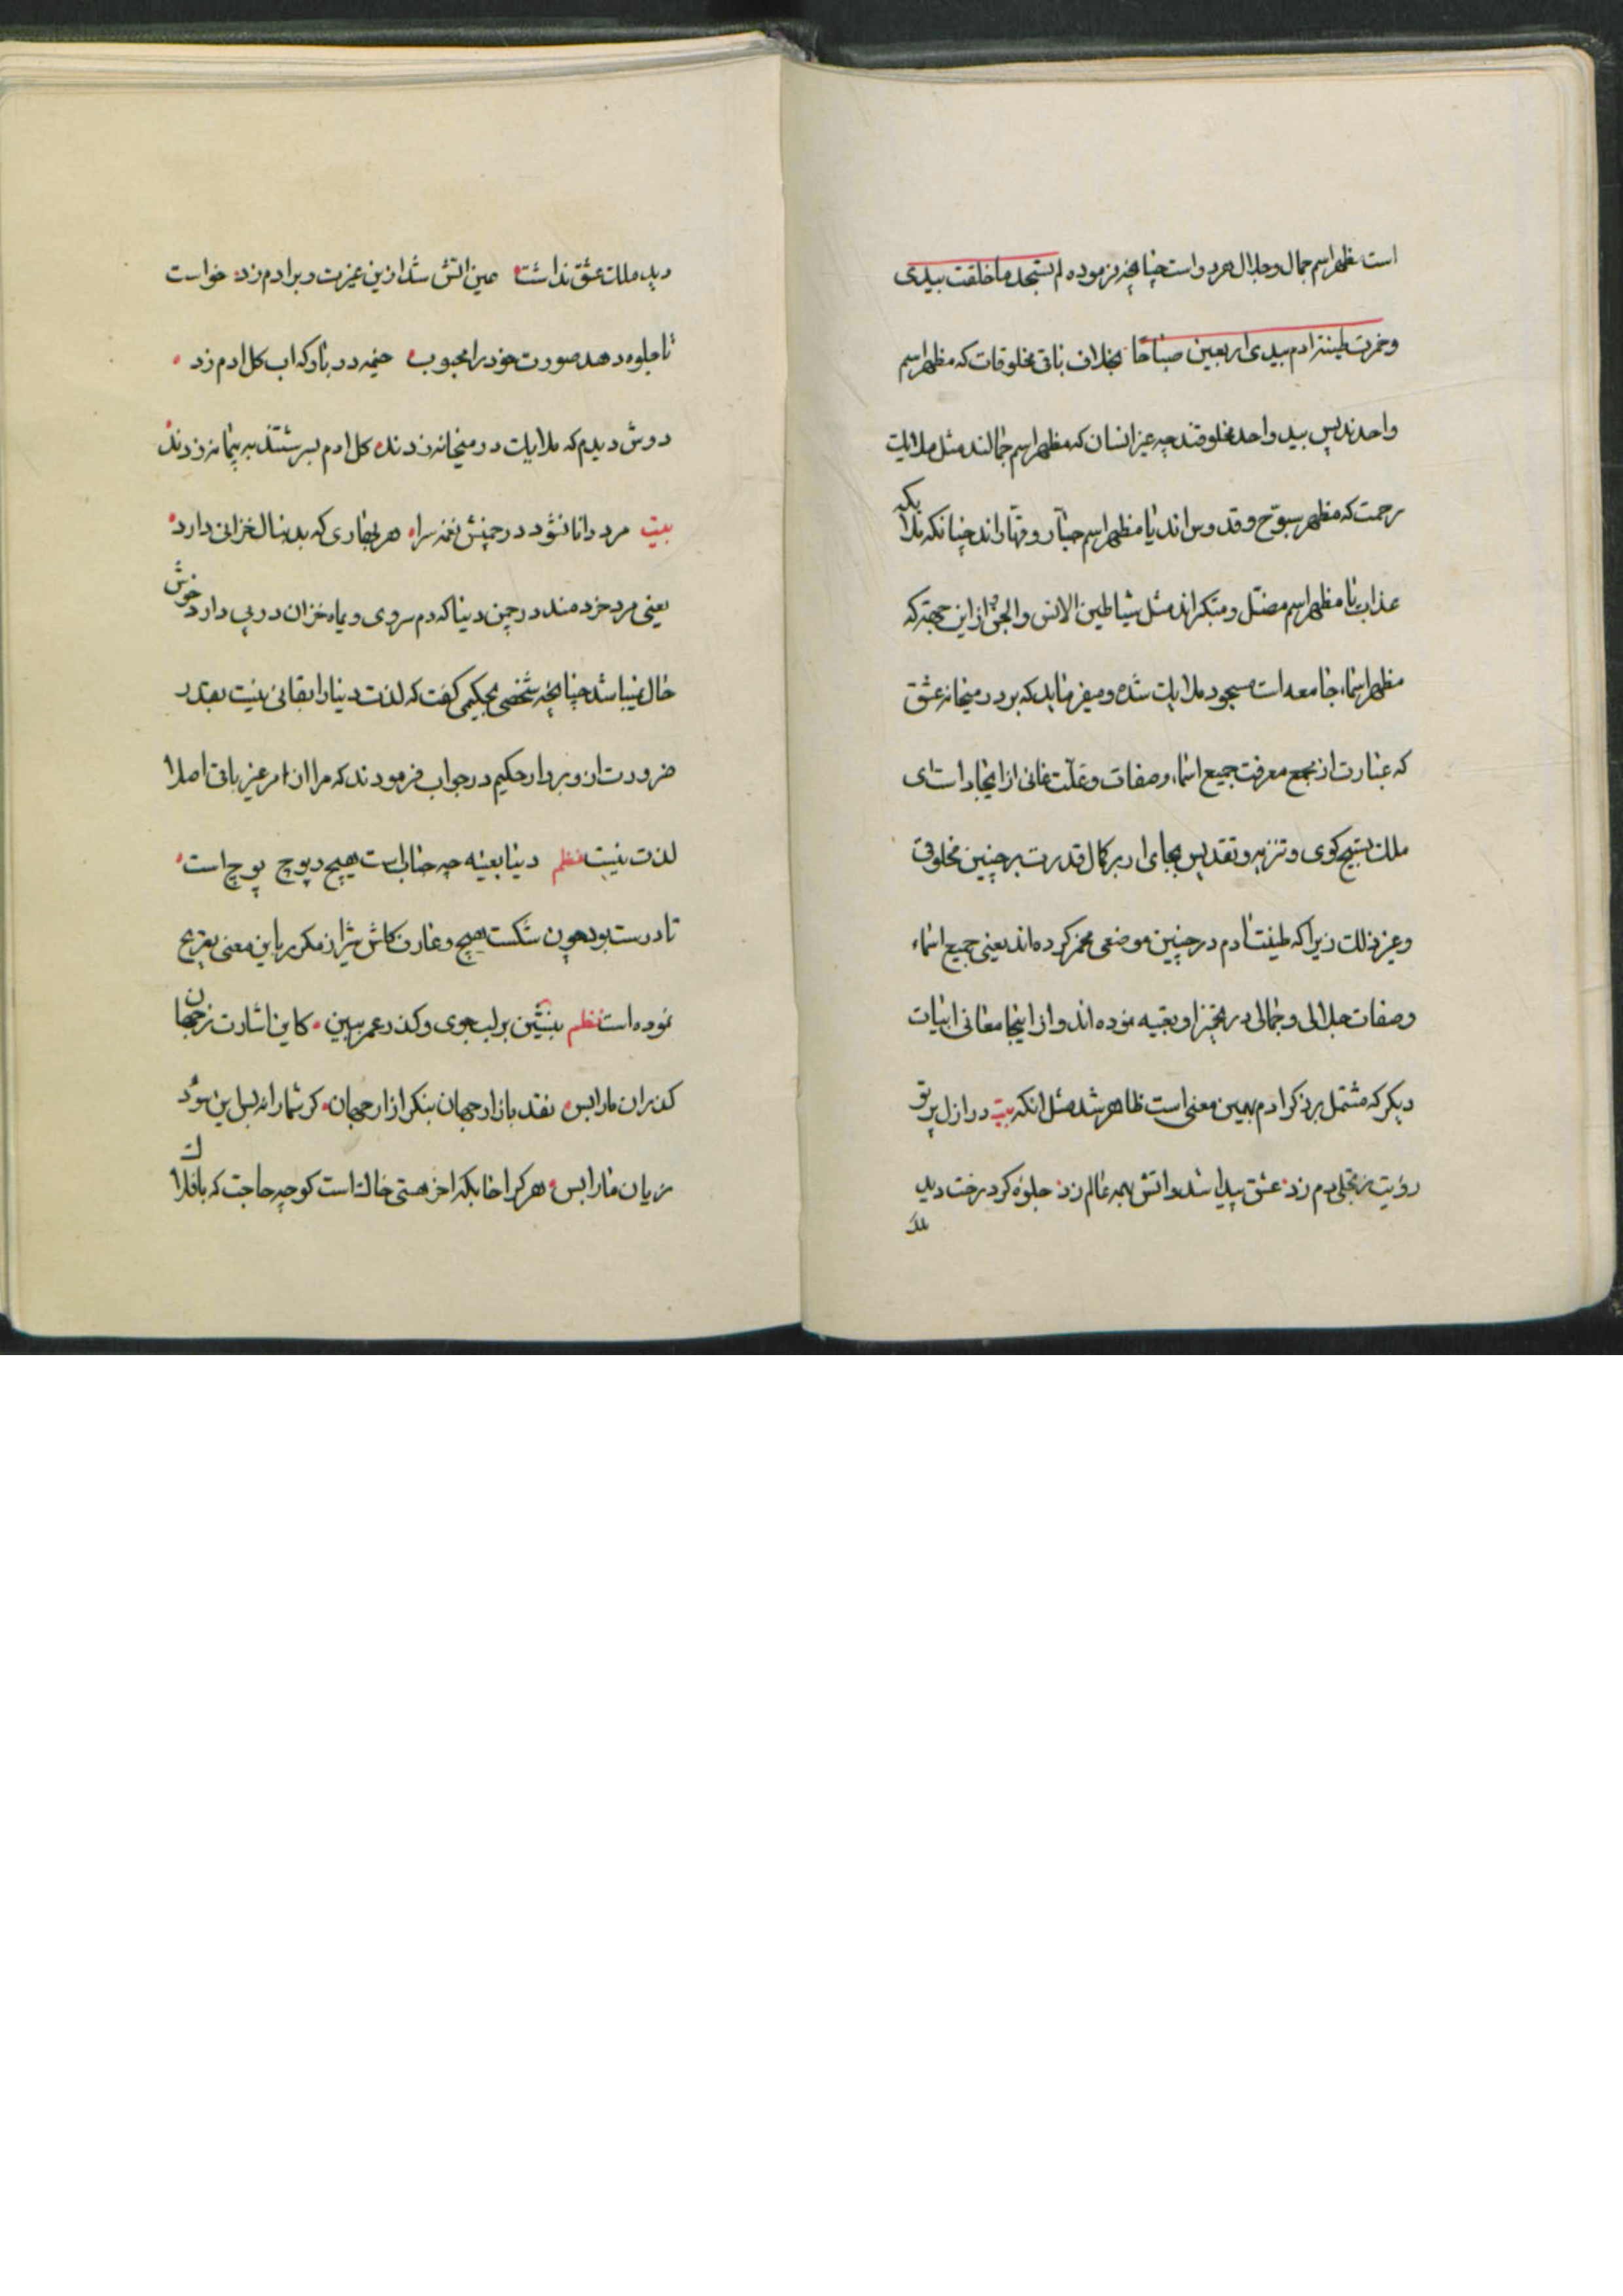 است مظهر اسم جمال و جلال هر دو است چنانچه فرموده لم تسجد ما خلقت بیدی
و خمرت طینة ادم بیدی اربعین صباحا بخلاف باقی مخلوقات که مظهر اسم
واحدند پس بید واحد مخلوقند چه غیر انسان که مظهر اسم جمالند مثل ملایک
رحمت که مظهر سبوح و قدوس اند یا مظهر اسم جبار و قهار اند چنانکه ملایکه
عذاب یا مظهر اسم مضل و متکبر اند مثل شیاطین الانس و الجن از این جهة که
مظهر اسماء جامعه است مسجود ملایک شده و میفرماید که بر در میخانه عشق
که عبارت از مجمع معرفت جمیع اسماء و صفات و علت غائی از ایجاد است ای
ملک تسبیح کوی و تنزیه و تقدیس بجای ار بر کمال قدرت بر چنین مخلوقی
و غیر ذلک زیرا که طینت ادم در چنین موضعی مخمر کرده اند یعنی جمیع اسماء
و صفات جلالی و جمالی در تخمیر او تعبیه نموده اند و از اینجا معانی ابیات
دیکر که مشتمل بر ذکر ادم بهمین معنی است ظاهر شد مثل انکه بیت در ازل پرتو
رؤیت ز تجلی دم زد عشق پیدا شد و اتش بهمه عالم زد جلوه کرد رخت دید
ملک
دید ملک عشق نداشت عین اتش شد ازین غیرت و بر ادم زد خواست
تا جلوه دهد صورت خود را محبوب خیمه در باد که اب کل ادم زد
دوش دیدم که ملایک در میخانه زدند کل ادم بسرشتند به پیمانه زدند
بیت مرد دانا نشود در چمنش نغمه سرا هر بهاری که بدنبال خزانی دارد
یعنی مرد خردمند در چمن دنیا که دم سردی و بماه خزان در پی دارد خوش
حال نمیباشد چنانچه شخصی بحکیمی کفت که لذت دنیا را بقائی نیست بقدر
ضرورت ان و بردار حکیم در جواب فرمودند که مرا ان امر غیر باقی اصلا
لذت نیست نظم دنیا بعینه چه حباب است هیچ و پوچ پوچ است
تا درست بود چون شکست هیچ و عارف کاش شیراز مکرر باین معنی تصریح
نموده است نظم بنشین بر لب جوی و کذر عمر ببین کاین اشارت ز جهان
کذران ما را بس نقد بازار جهان بنکر ازار جهان کر شما را نه بس این سود
زیان ما را بس هر کرا خابکه اخر مشتی خاک است کو چه حاجت که بافلاک